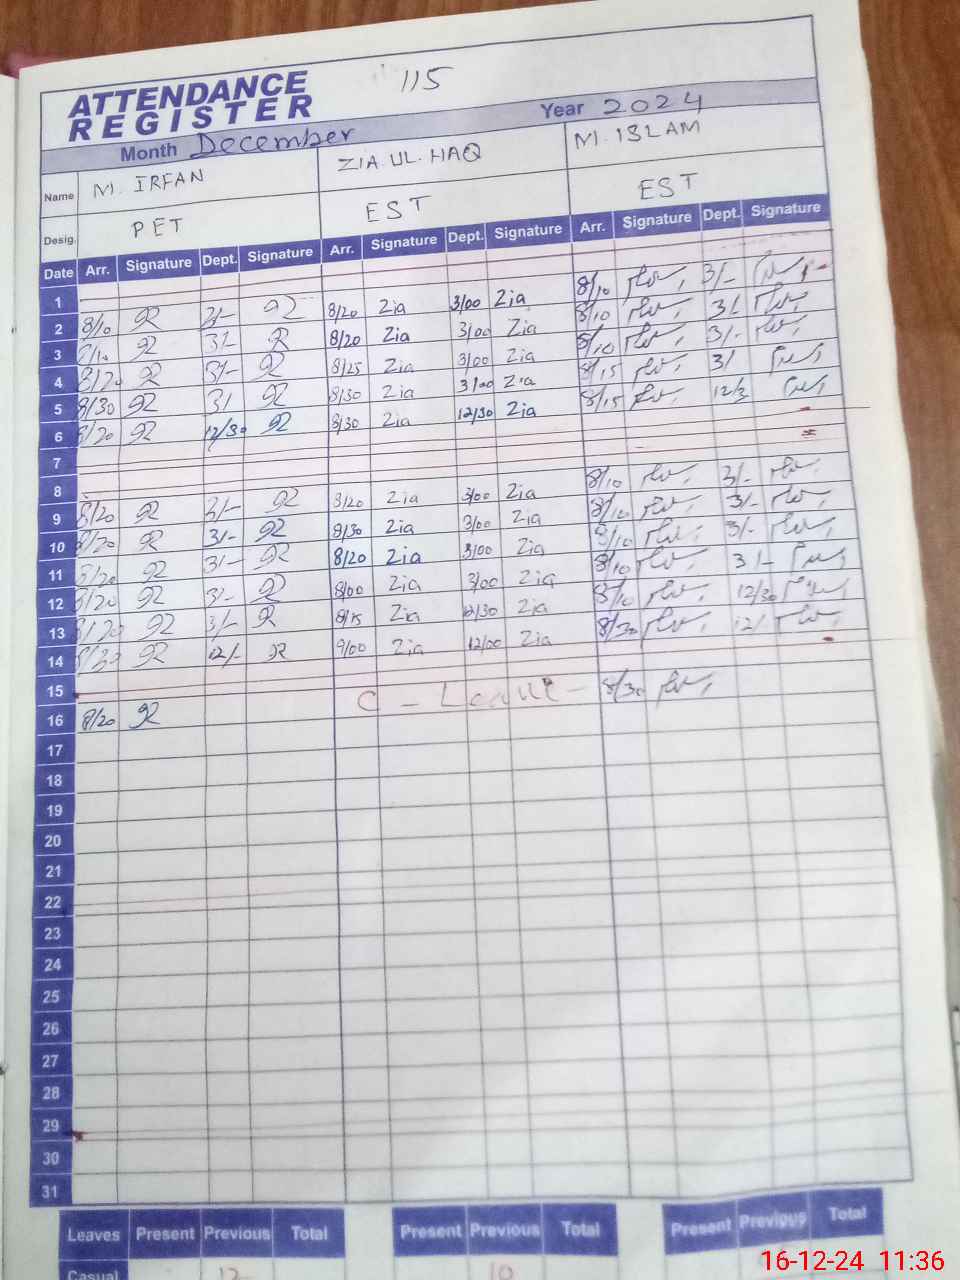 115
ATTENDANCE
REGISTER
Month December Year 2024
Name M. IRFAN ZIA.UL.HAQ M. ISLAM
Desig. PET EST EST
Date Arr. Signature Dept. Signature Arr. Signature Dept. Signature Arr. Signature Dept. Signature
1
2 8/10 3/- 8/20 Zia 3/00 Zia 8/10 3/-
3 8/10 3/- 8/20 Zia 3/00 Zia 8/10 3/-
4 8/20 3/- 8/25 Zia 3/00 Zia 8/10 3/-
5 8/30 3/ 8/30 Zia 3/00 Zia 8/15 3/
6 8/20 12/30 8/30 Zia 12/30 Zia 8/15 12/3
7
8
9 8/20 3/- 8/20 Zia 3/00 Zia 8/10 3/-
10 8/20 3/- 8/30 Zia 3/00 Zia 8/10 3/-
11 8/20 3/- 8/20 Zia 3/00 Zia 8/10 3/-
12 8/20 3/- 8/00 Zia 3/00 Zia 8/10 3/-
13 8/20 3/- 8/15 Zia 12/30 Zia 8/10 12/30
14 8/30 12/- 9/00 Zia 12/00 Zia 8/30 12/-
15
16 8/20 C - Leave - 8/30
17
18
19
20
21
22
23
24
25
26
27
28
29
30
31
Leaves Present Previous Total Present Previous Total Present Previous Total
Casual 12 10
16-12-24 11:36